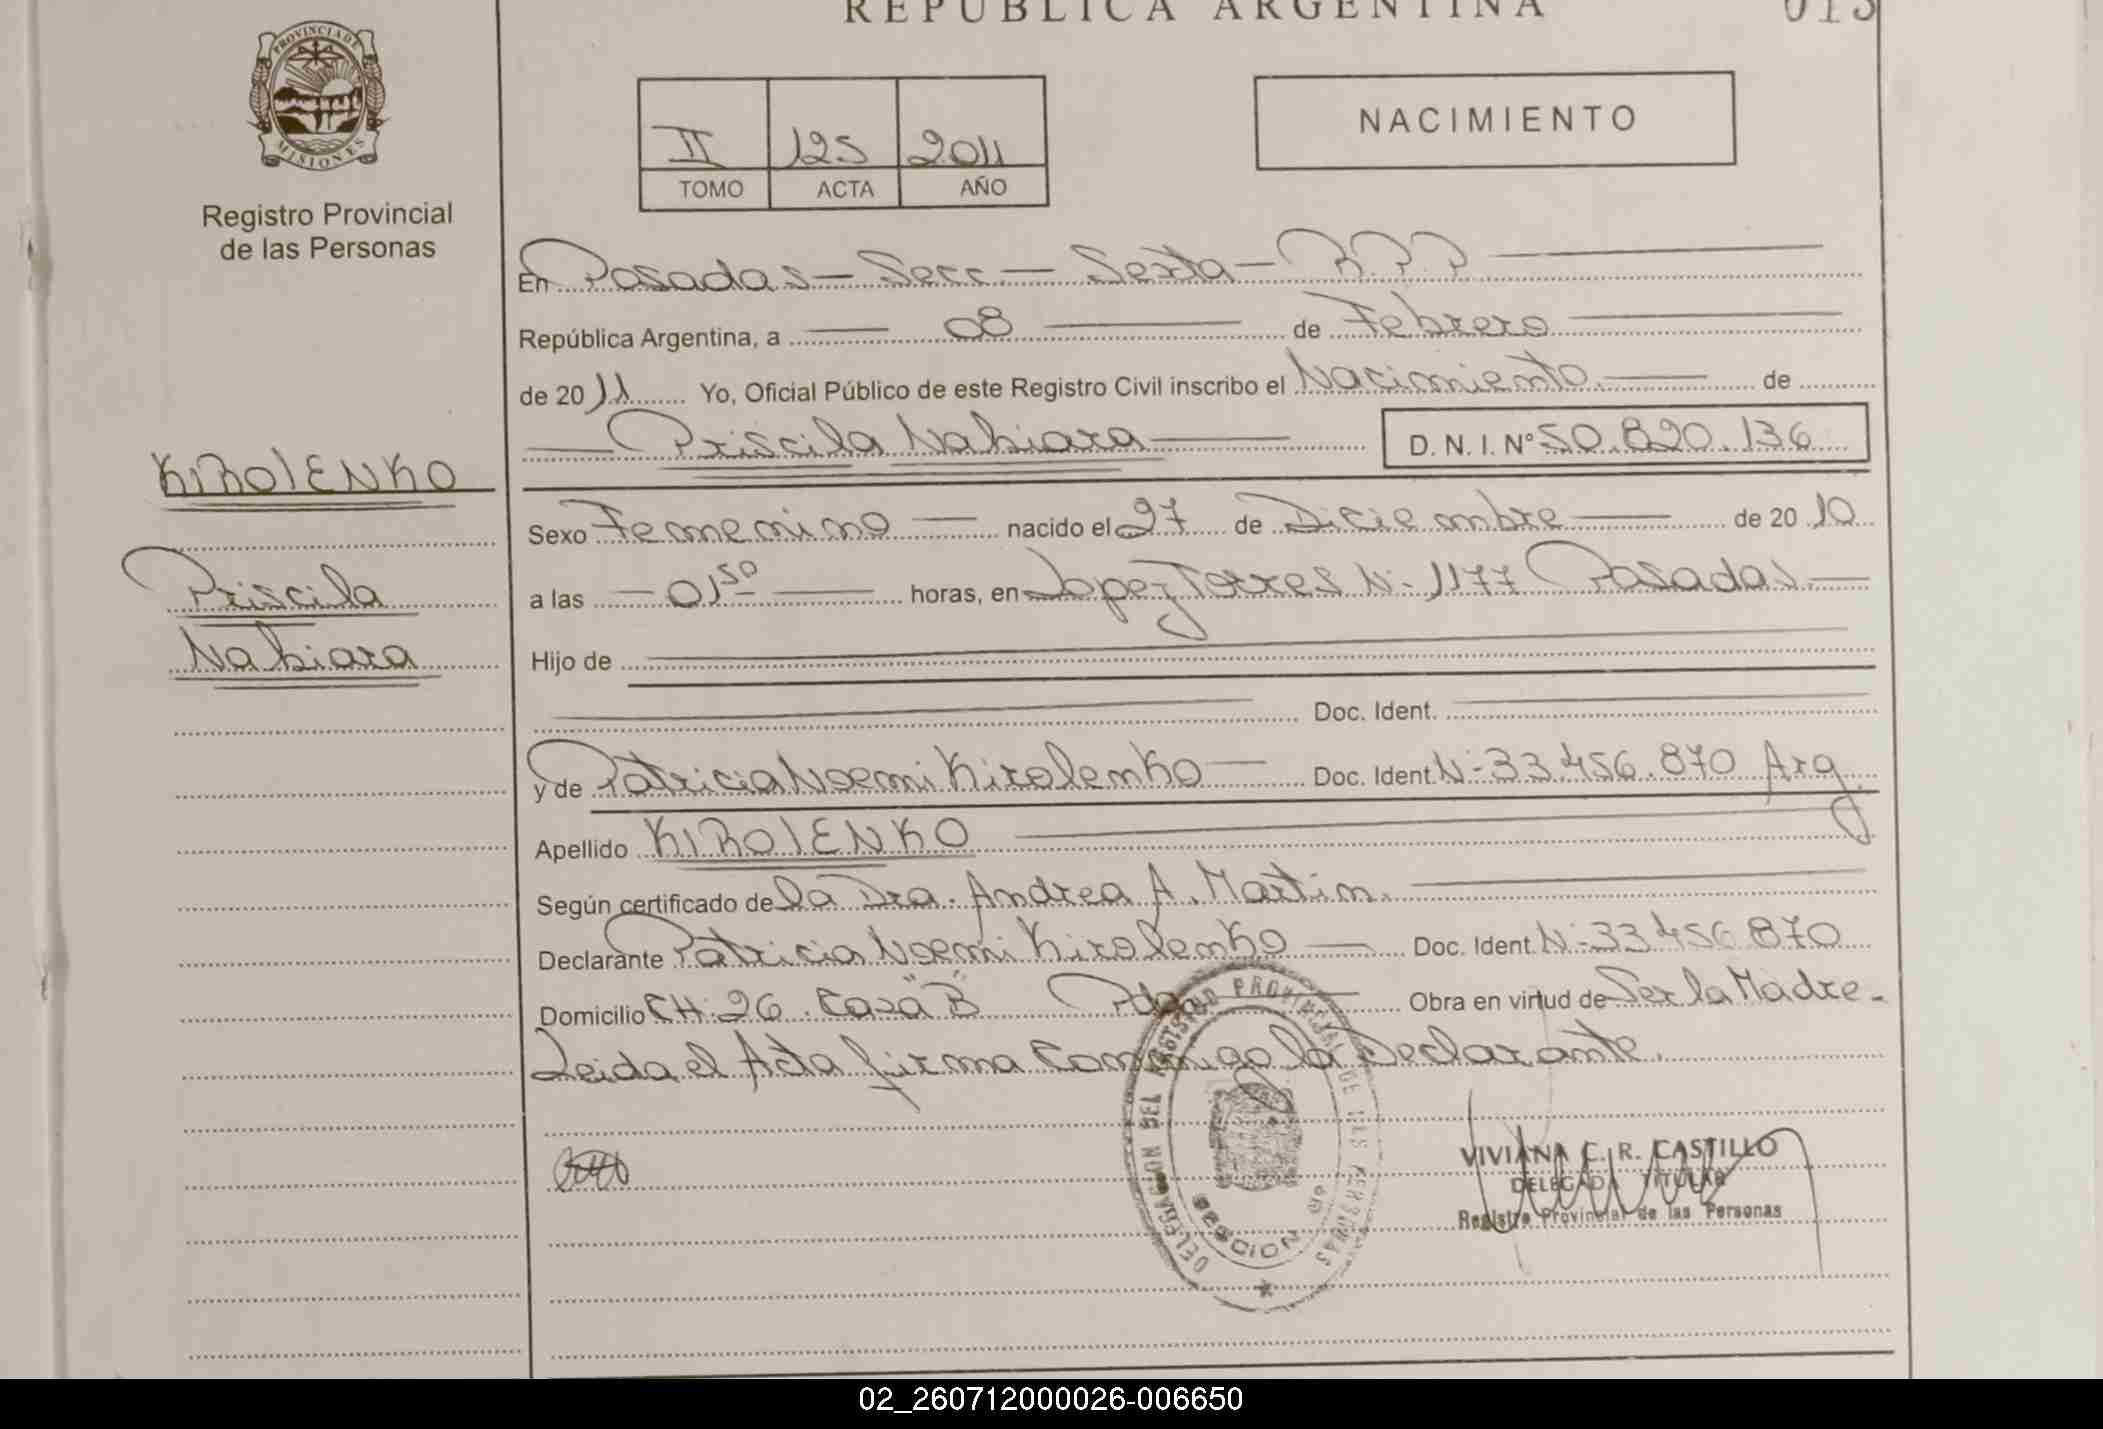 REPUBLICA ARGENTINA
013
PROVINCIA DE
MISIONES
Registro Provincial
de las Personas
II 125 2011
TOMO ACTA AÑO
NACIMIENTO
En Posadas - Secc. - Sexta - R.P.P
República Argentina, a 08 de Febrero
de 2011 Yo, Oficial Público de este Registro Civil inscribo el Nacimiento. de
Priscila Nahiara D. N. I. Nº 50.820.136
KIROLENKO
Priscila
Nahiara
Sexo Femenino nacido el 27 de Diciembre de 2010
a las 01 50 horas, en Lopez Torres N- 1177 Posadas.
Hijo de
Doc. Ident.
y de Patricia Noemi Kirolenko Doc. Ident. N- 33.456.870 Arg
Apellido KIROLENKO
Según certificado de la Dra. Andrea A. Martin.
Declarante Patricia Noemi Kirolenko Doc. Ident. N- 33.456.870
Domicilio CH. 26. Casa "B" Pdas Obra en virtud de Ser la Madre -
Leida el Acta firma Conmigo la Declarante.
DELEGACION DEL REGISTRO PROVINCIAL DE LAS PERSONAS
SECCION 6a
VIVIANA C. R. CASTILLO
DELEGADA TITULAR
Registro Provincial de las Personas
02_260712000026-006650